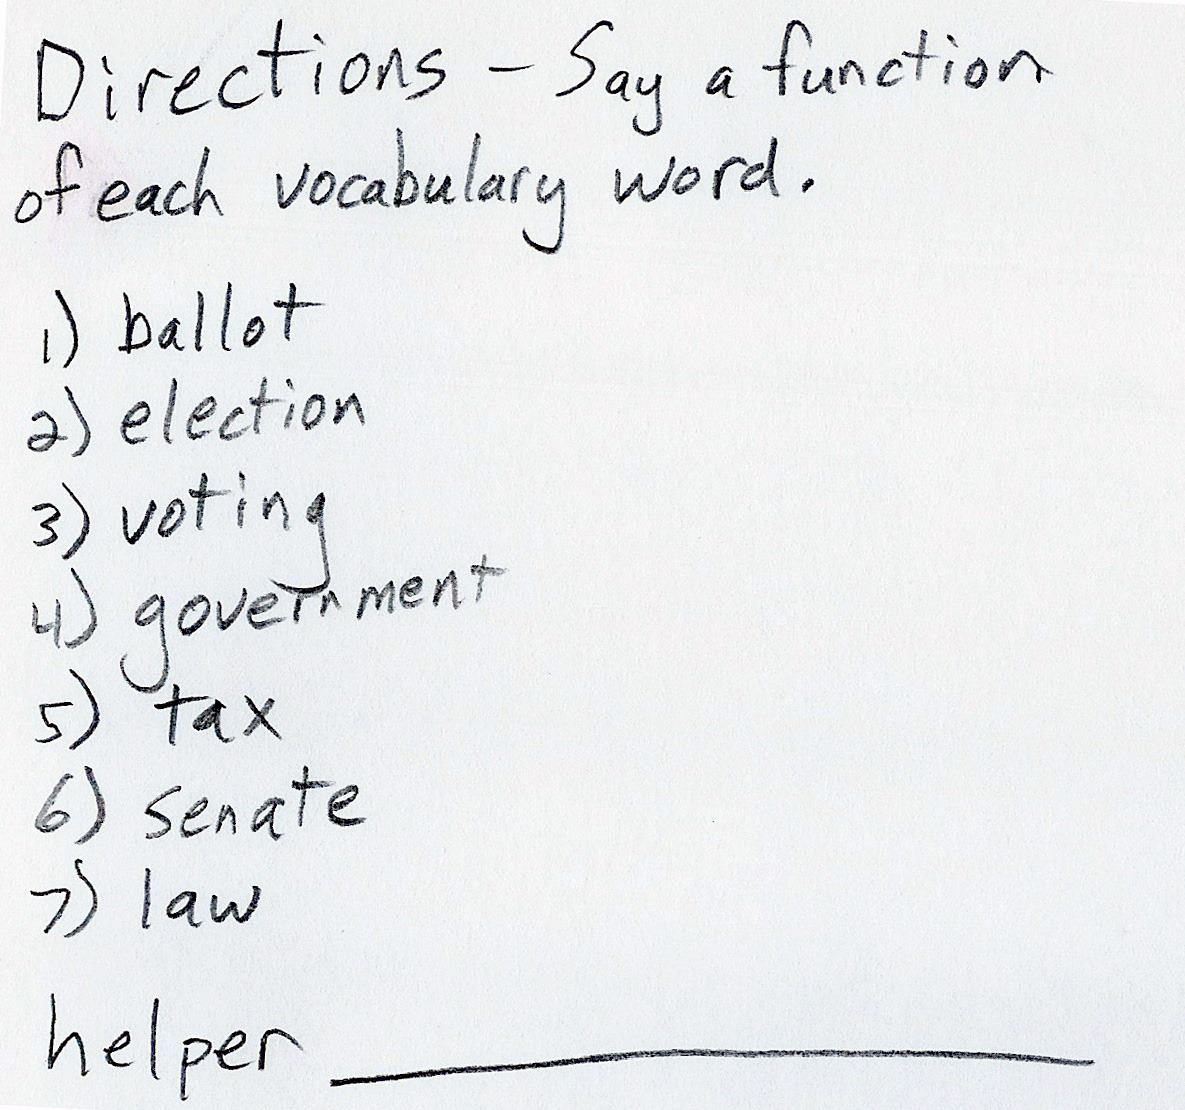 Directions - Say a function
of each vocabulary word.
1) ballot
2) election
3) voting
4) government
5) tax
6) senate
7) law
helper ____________